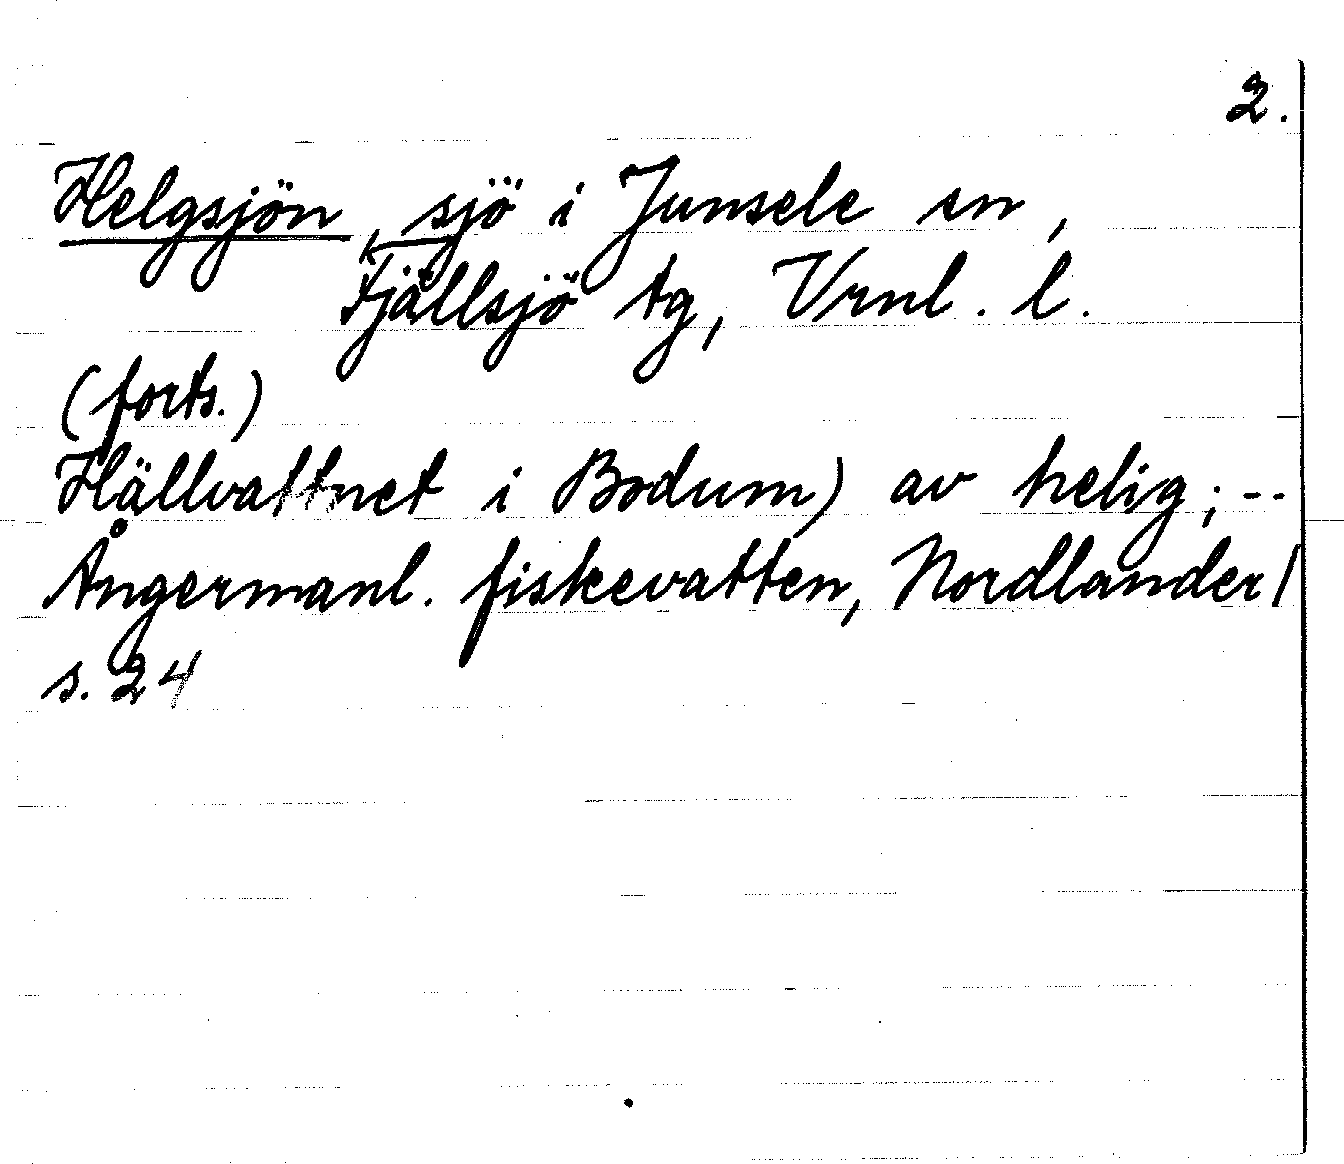 2.
Helgsjön, sjö i Junsele sn,
Fjällsjö tg, Vrnl. l.
(forts.)
Hällvattnet i Bodum) av helig; --
Ångermanl. fiskevatten, Nordlander/
s. 24